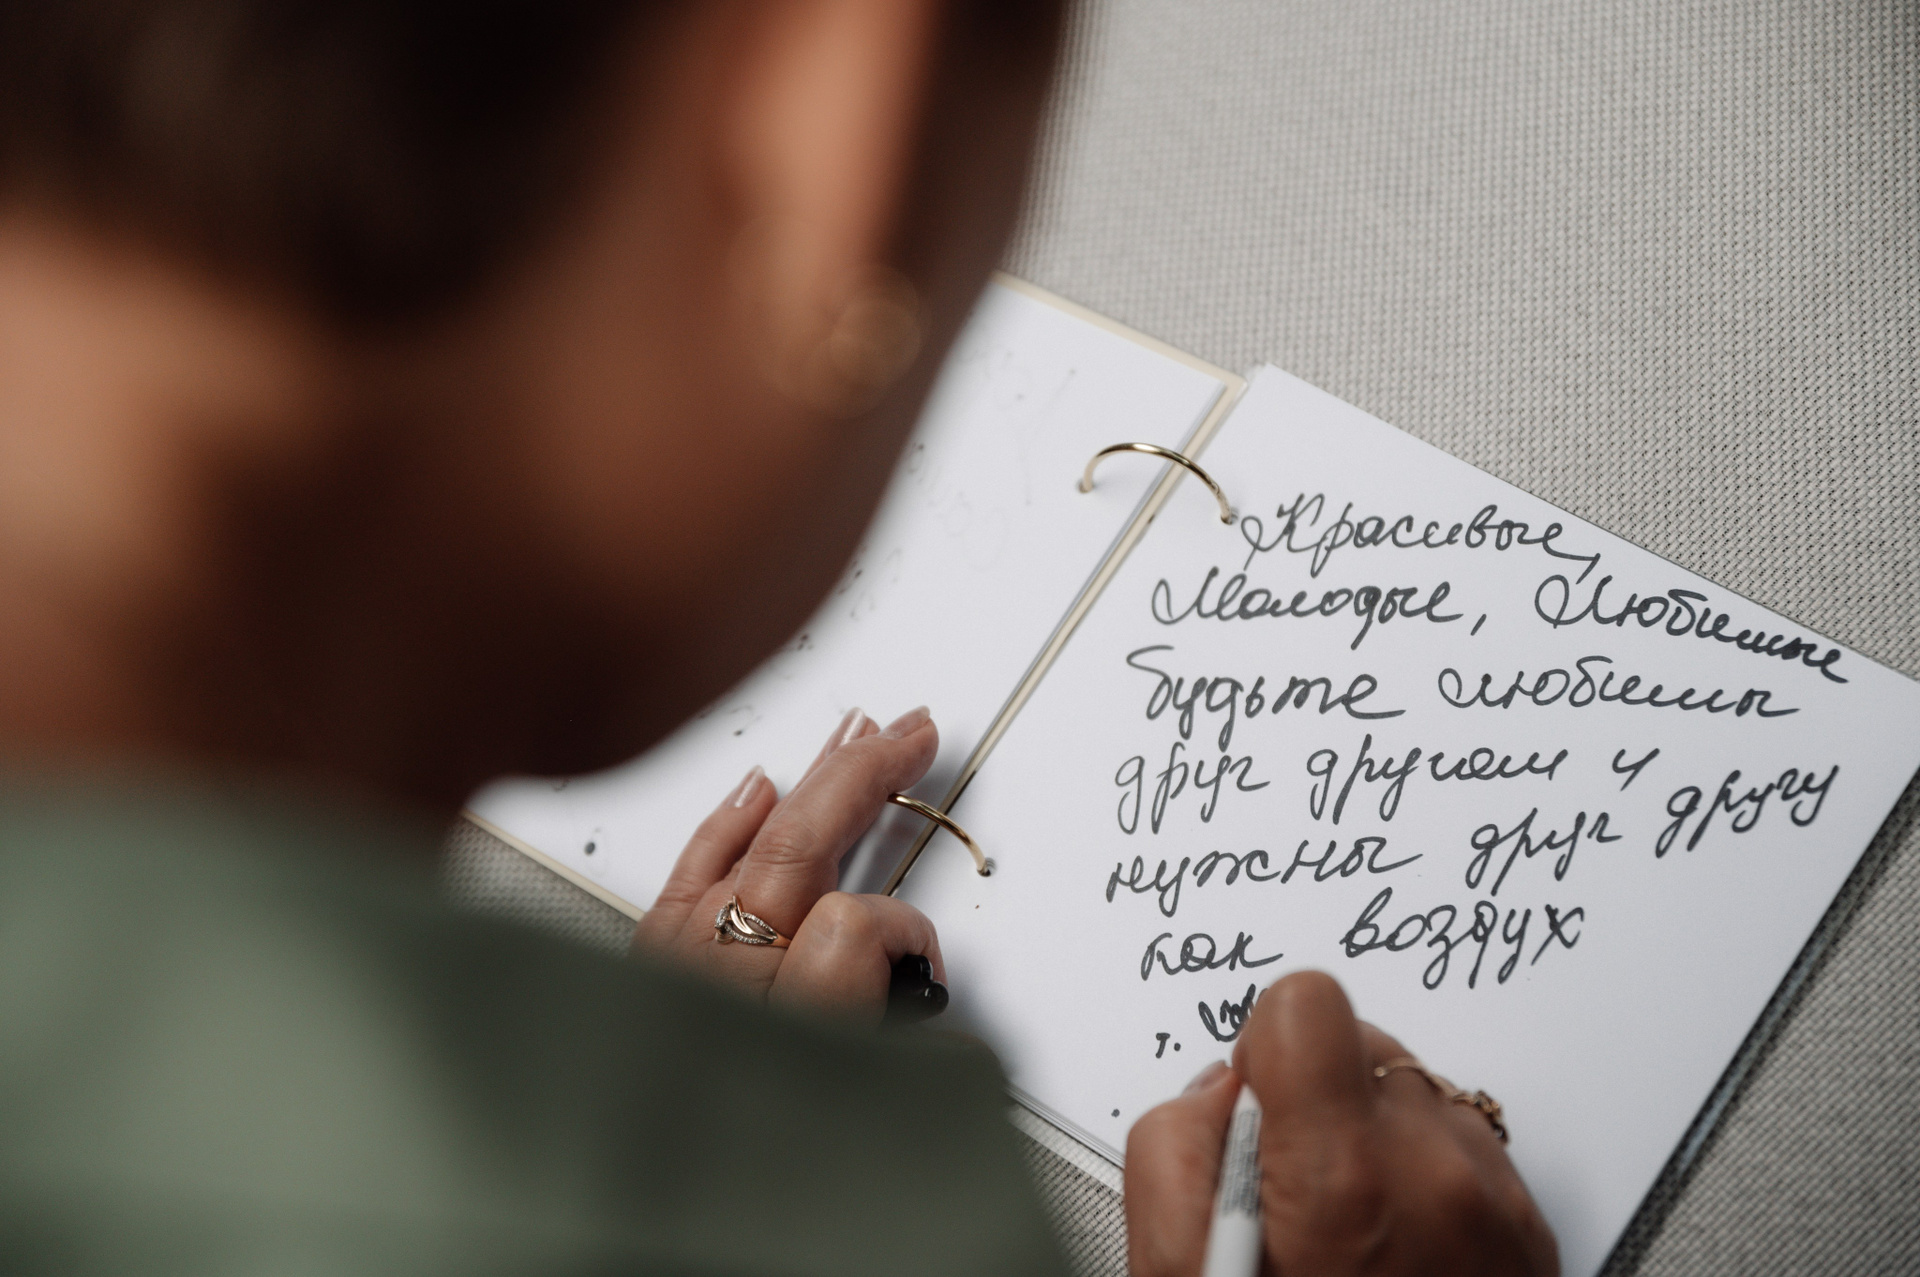 Красивые,
Молодые, Любимые
будьте любимы
друг другом и
нужны друг другу
как воздух
т.